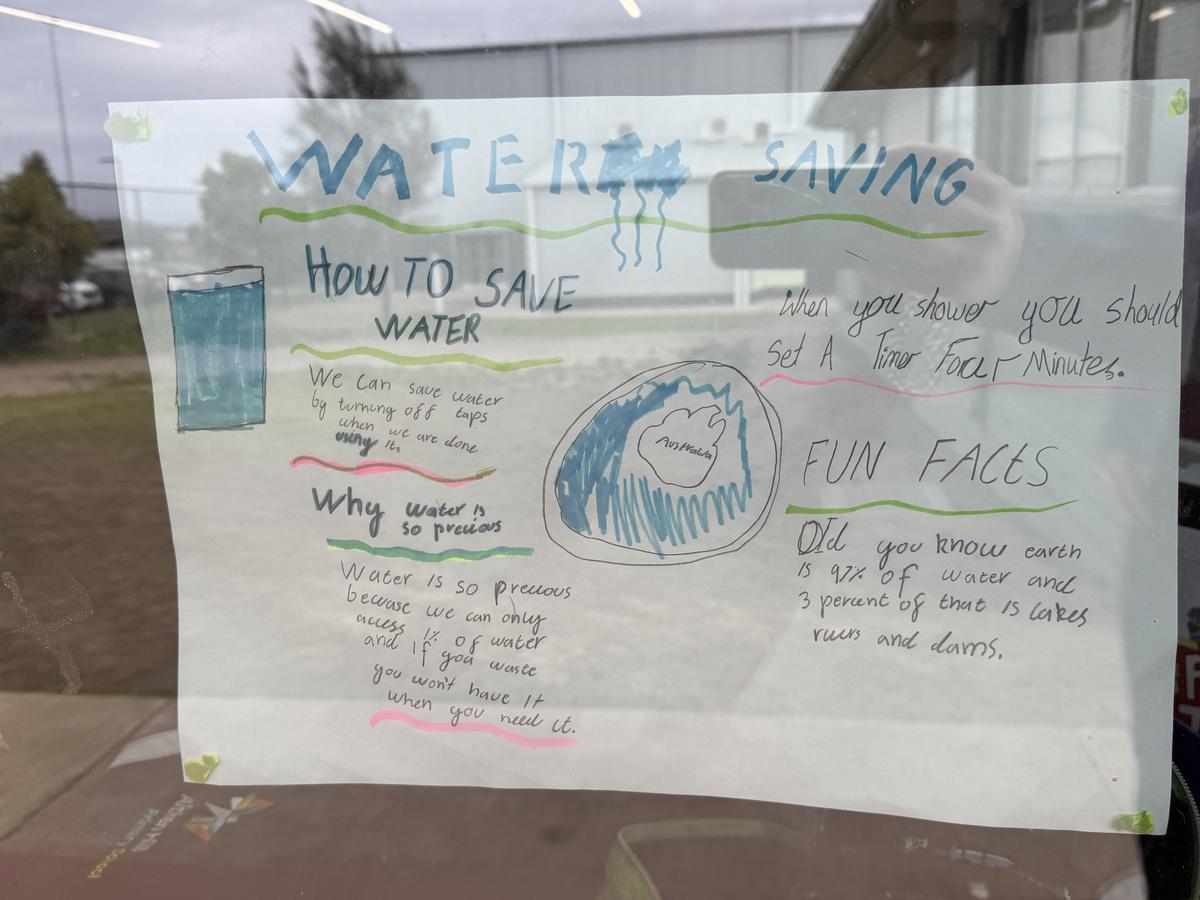 WATER SAVING
HOW TO SAVE
WATER
We can save water
by turning off taps
when we are done
using it.
Why water is
so precious
Water is so precious
because we can only
access 1% of water
and if you waste
you won't have it
when you need it.
Australia
When you shower you should
Set A Timer Four Minutes.
FUN FACtS
DId you know earth
is 97% of water and
3 percent of that is lakes
rivers and dams.
Primary School